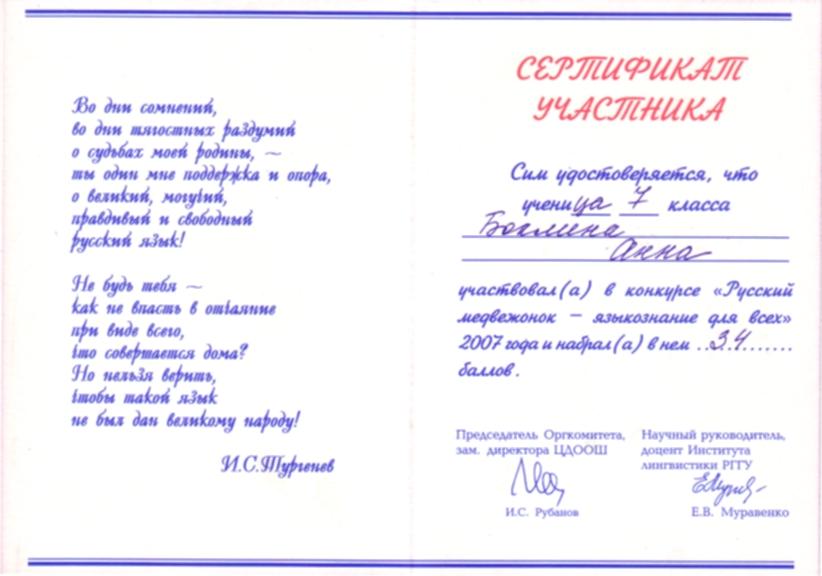 Во дни сомнений,
во дни тягостных раздумий
о судьбах моей родины, —
ты один мне поддержка и опора,
о великий, могучий,
правдивый и свободный
русский язык!
Не будь тебя —
как не впасть в отчаяние
при виде всего,
что совершается дома?
Но нельзя верить,
чтобы такой язык
не был дан великому народу!
И.С.Тургенев
СЕРТИФИКАТ
УЧАСТНИКА
Сим удостоверяется, что
ученица 7 класса
Анна
участвовал(а) в конкурсе «Русский
медвежонок — языкознание для всех»
2007 года и набрал(а) в нем ..34.......
баллов.
Председатель Оргкомитета,
зам. директора ЦДООШ
И.С. Рубанов
Научный руководитель,
доцент Института
лингвистики РГГУ
Е.В. Муравенко